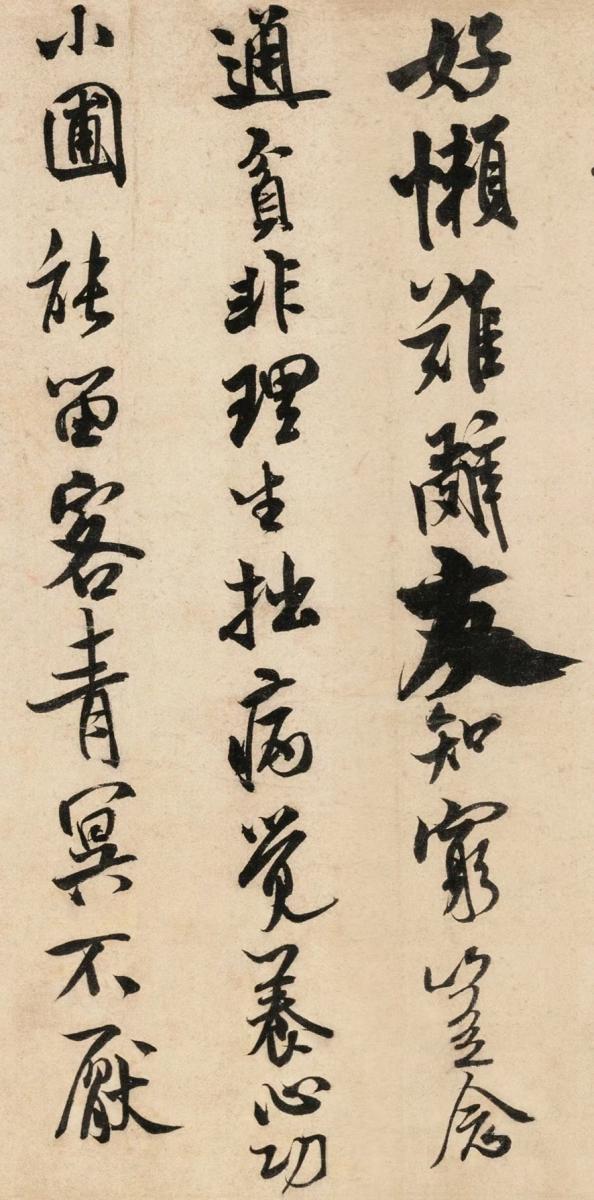 好懶難辭友知窮豈念
通貧非理生拙病覺養心功
小圃能留客青冥不厭